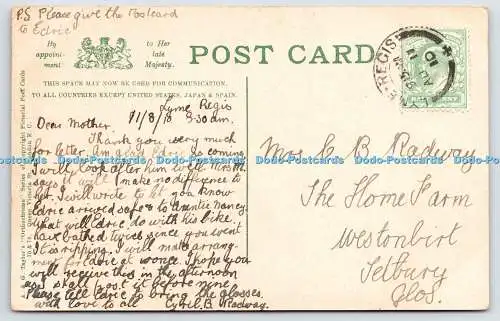 P.S Please give the Postcard
to Edric
By
appoint-
ment
to Her
late
Majesty.
POST CARD.
THIS SPACE MAY NOW BE USED FOR COMMUNICATION
TO ALL COUNTRIES EXCEPT UNITED STATES, JAPAN & SPAIN.
LYME REGIS
AU 11
10
Lyme Regis
11/8/10 8.30am.
Dear Mother
Thank you very much
for letter. Am glad Edric is coming
I will look after him well. Mrs M.
says it will make no difference to
her. I will write to let you know
Edric arrived safe & to Auntie Nancy
what will Edric do with his bike. I
have bathed twice since you went
It is ripping. I will make arrange-
ment for Edric at once. I hope you
will receive this in the afternoon
as I shall post it before nine
Please tell Edric to bring the glosses.
with love to all Cyril B Radway.
Mrs C B Radway
The Home Farm
Westonbirt
Tetbury
Glos.
Dodo-Postcards Dodo-Postcards Dodo-Postcards Dodo-Postcards Dodo-Postcards